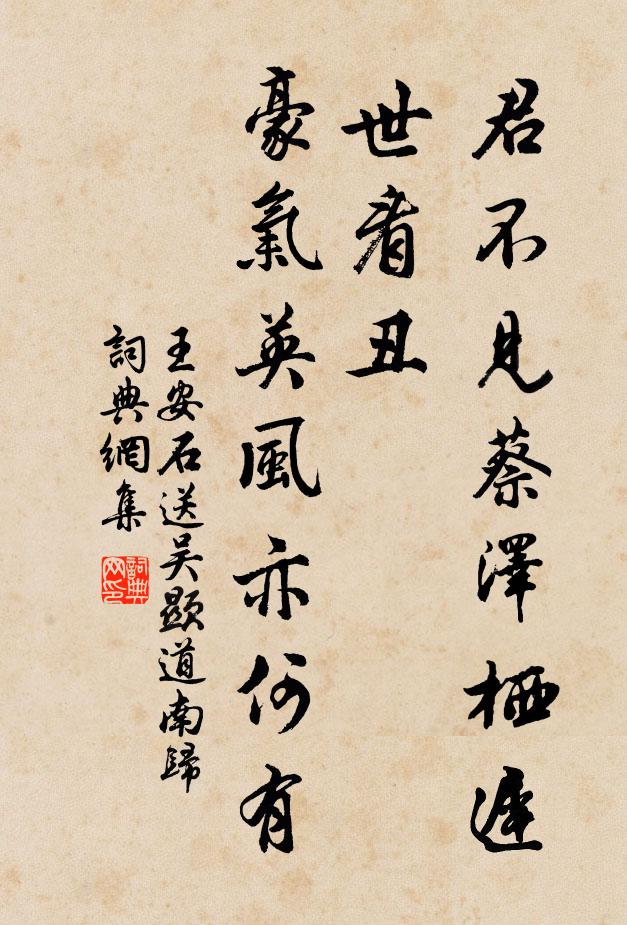 君不見蔡澤栖遲
世看丑
豪氣英風亦何有
王安石送吴顯道南歸
詞典網集
詞典网印